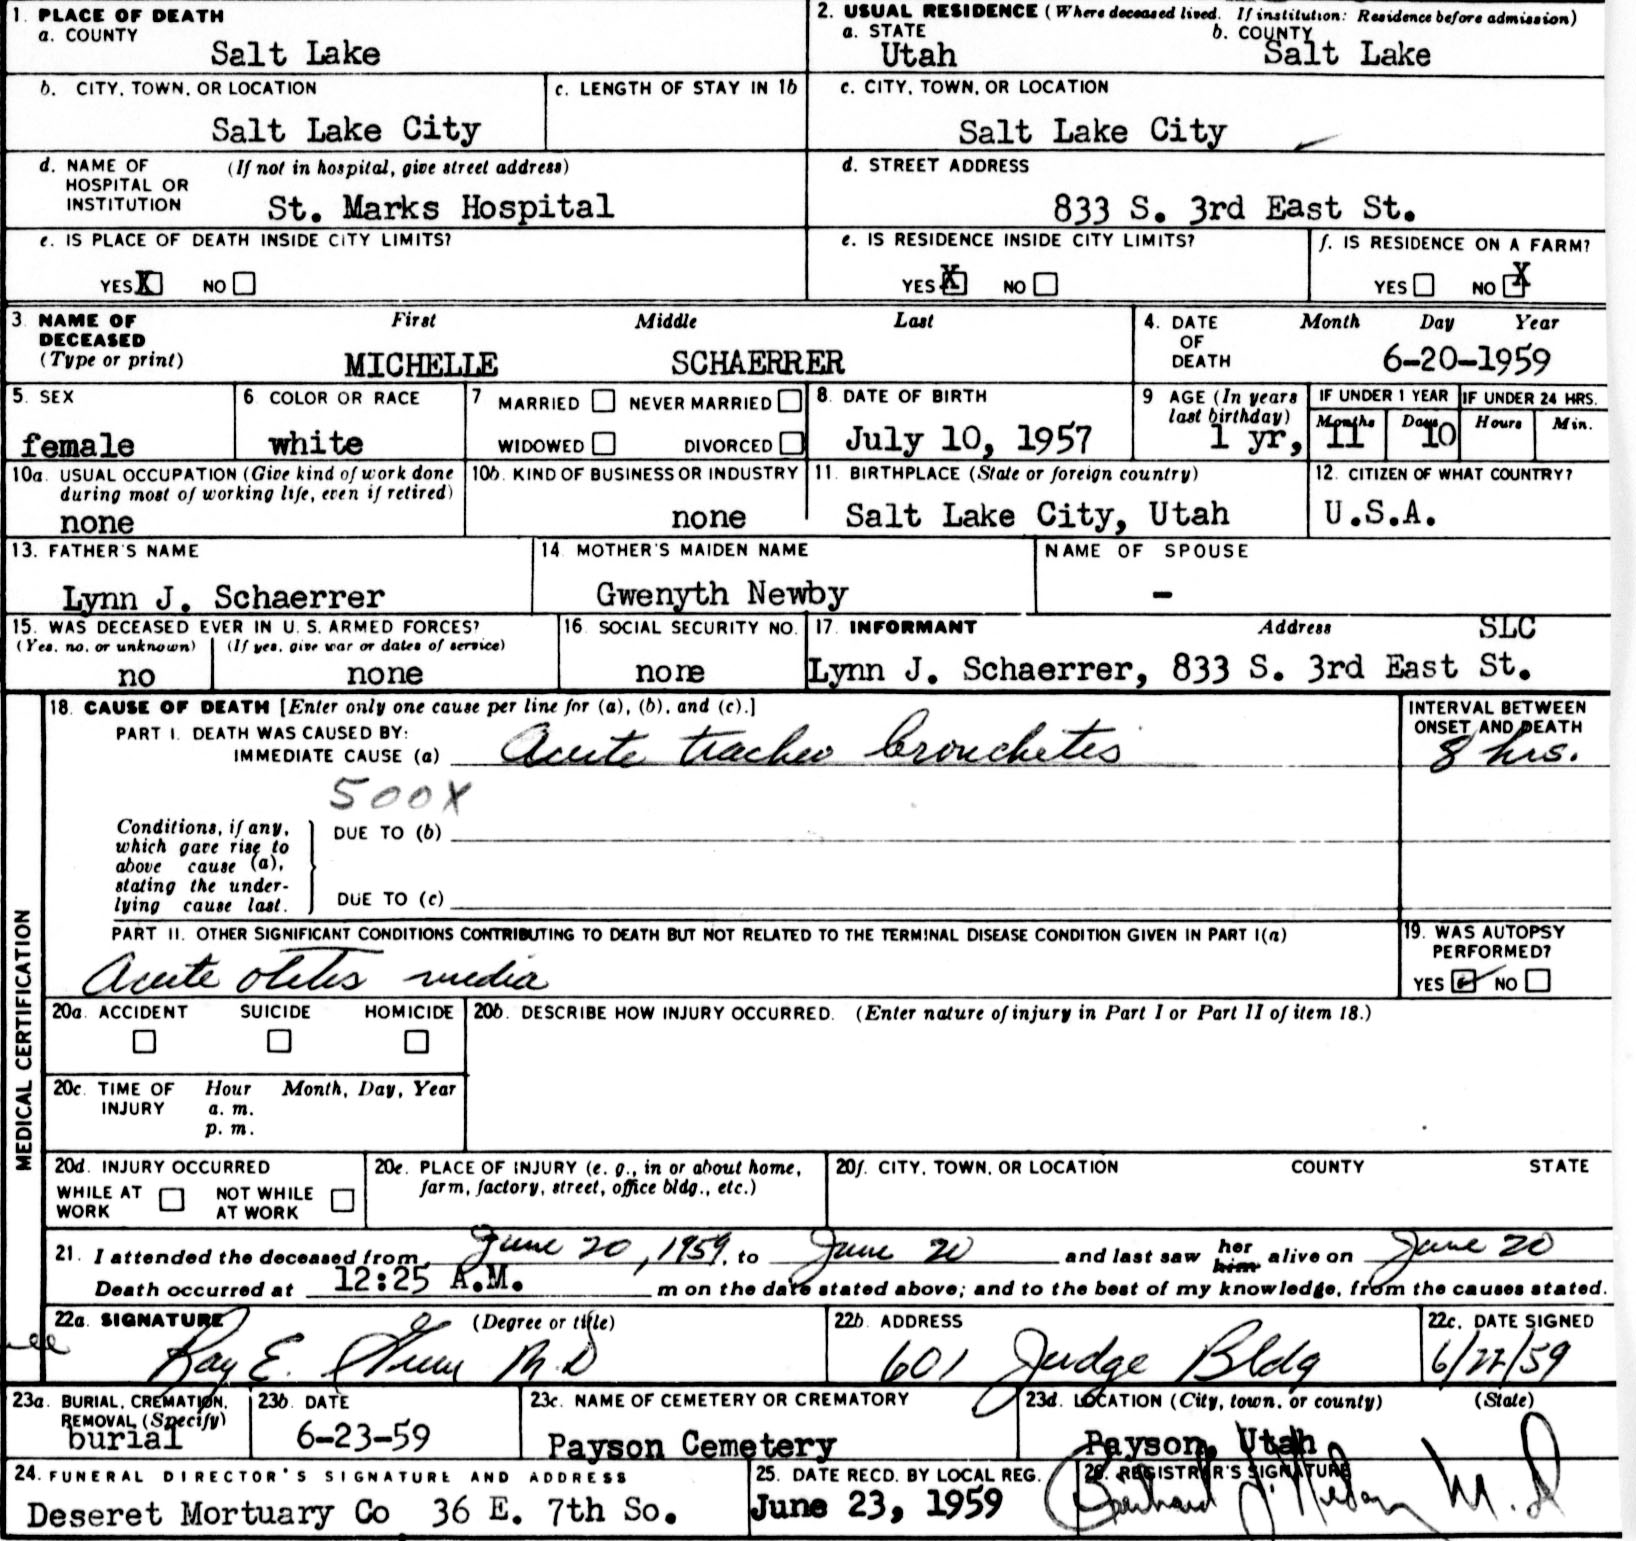 1. PLACE OF DEATH
a. COUNTY
Salt Lake
2. USUAL RESIDENCE (Where deceased lived. If institution: Residence before admission)
a. STATE
Utah
b. COUNTY
Salt Lake
b. CITY, TOWN, OR LOCATION
Salt Lake City
c. LENGTH OF STAY IN 1b
c. CITY, TOWN, OR LOCATION
Salt Lake City
d. NAME OF HOSPITAL OR INSTITUTION
(If not in hospital, give street address)
St. Marks Hospital
d. STREET ADDRESS
833 S. 3rd East St.
e. IS PLACE OF DEATH INSIDE CITY LIMITS?
YES X NO
e. IS RESIDENCE INSIDE CITY LIMITS?
YES X NO
f. IS RESIDENCE ON A FARM?
YES NO X
3. NAME OF DECEASED
(Type or print)
First Middle Last
MICHELLE SCHAERRER
4. DATE OF DEATH
Month Day Year
6-20-1959
5. SEX
female
6 COLOR OR RACE
white
7 MARRIED NEVER MARRIED
WIDOWED DIVORCED
8. DATE OF BIRTH
July 10, 1957
9 AGE (In years last birthday)
1 yr,
IF UNDER 1 YEAR
Months Days
11 10
IF UNDER 24 HRS.
Hours Min.
10a. USUAL OCCUPATION (Give kind of work done during most of working life, even if retired)
none
10b. KIND OF BUSINESS OR INDUSTRY
none
11. BIRTHPLACE (State or foreign country)
Salt Lake City, Utah
12. CITIZEN OF WHAT COUNTRY?
U.S.A.
13. FATHER'S NAME
Lynn J. Schaerrer
14 MOTHER'S MAIDEN NAME
Gwenyth Newby
NAME OF SPOUSE
–
15. WAS DECEASED EVER IN U. S. ARMED FORCES?
(Yes, no, or unknown) (If yes, give war or dates of service)
no none
16 SOCIAL SECURITY NO.
none
17. INFORMANT Address SLC
Lynn J. Schaerrer, 833 S. 3rd East St.
MEDICAL CERTIFICATION
18. CAUSE OF DEATH [Enter only one cause per line for (a), (b), and (c).]
PART I. DEATH WAS CAUSED BY:
IMMEDIATE CAUSE (a) Acute tracheo bronchetis
INTERVAL BETWEEN ONSET AND DEATH
8 hrs.
500X
Conditions, if any, which gave rise to above cause (a), stating the underlying cause last.
DUE TO (b)
DUE TO (c)
PART II. OTHER SIGNIFICANT CONDITIONS CONTRIBUTING TO DEATH BUT NOT RELATED TO THE TERMINAL DISEASE CONDITION GIVEN IN PART I(a)
Acute otitis media
19. WAS AUTOPSY PERFORMED?
YES NO
20a. ACCIDENT SUICIDE HOMICIDE
20b. DESCRIBE HOW INJURY OCCURRED. (Enter nature of injury in Part I or Part II of item 18.)
20c. TIME OF INJURY
Hour Month, Day, Year
a. m.
p. m.
20d. INJURY OCCURRED
WHILE AT WORK NOT WHILE AT WORK
20e. PLACE OF INJURY (e. g., in or about home, farm, factory, street, office bldg., etc.)
20f. CITY, TOWN, OR LOCATION COUNTY STATE
21. I attended the deceased from June 20, 1959, to June 20 and last saw her him alive on June 20
Death occurred at 12:25 A.M. m on the date stated above; and to the best of my knowledge, from the causes stated.
22a. SIGNATURE (Degree or title)
Ray E. M.D
22b. ADDRESS
601 Judge Bldg
22c. DATE SIGNED
6/22/59
23a. BURIAL, CREMATION, REMOVAL (Specify)
burial
23b. DATE
6-23-59
23c. NAME OF CEMETERY OR CREMATORY
Payson Cemetery
23d. LOCATION (City, town, or county) (State)
Payson, Utah
24. FUNERAL DIRECTOR'S SIGNATURE AND ADDRESS
Deseret Mortuary Co 36 E. 7th So.
25. DATE RECD. BY LOCAL REG.
June 23, 1959
26. REGISTRAR'S SIGNATURE
M.D